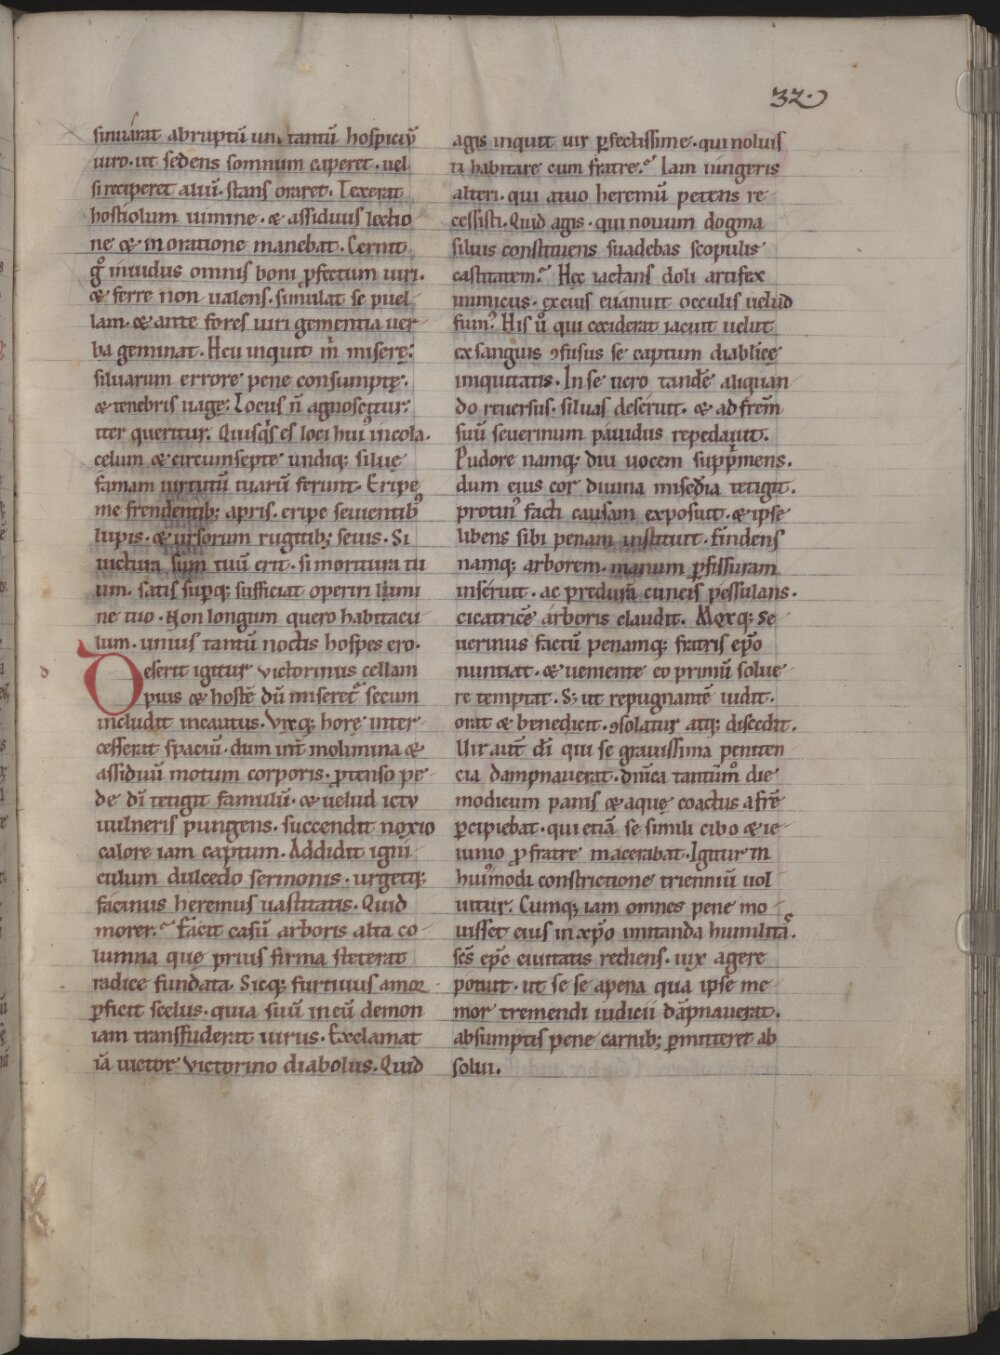 32.
sinuarat abruptū un. tantū hospiciū
uiro. ut sedens somnum caperet. uel
si reciperet aluū. stans oraret. Texerat
hostiolum uimine. & assiduus lectio
ne & in oratione manebat. Cernit
gͦ inuidus omnis boni ꝓfectum uiri.
& ferre non ualens. simulat se puel
lam. & ante fores uiri gementia uer
ba geminat. Heu inquit m̄ miserę.
siluarum errore pene consumptę.
& tenebris uagę: Locus n̄ agnoscitur.
iter queritur. Quisq̇s es loci huiꝰ incola.
celum & circumsepte undiq; siluę
famam uirtutū tuarū ferunt. Eripe
me frendentib; apris. eripe seuientibꝰ
lupis. & ursorum rugitib; seuis. Si
uictura sum tuū erit. si moritura tu
um. satis supq; sufficiat operiri limi
ne tuo. Non longum quero habitacu
lum. unius tantū noctis hospes ero.
Deserit igitur victorinus cellam
pius & hostē dū miseret᷑ secum
includit incautus. Vixq; horę inter
cesserat spaciū. dum int̄ molimina &
assiduū motum corporis. ꝓtenso pe
de dī tetigit famulū. & uelud ictu
uulneris pungens. succendit noxio
calore iam captum. Addidit igni
culum dulcedo sermonis. urgetq;
facinus heremus uastitatis. Quid
morer. Facit casū arboris alta co
lumna quę prius firma steterat
radice fundata. Sicq; furtiuus amor
ꝑficit scelus. quia suū in eū demon
iam transfuderat uirus. Exclamat
iā uictor victorino diabolus. Quid
agis inquit uir ꝑfectissime. qui noluis
ti habitare cum fratre. Iam iungeris
alteri. qui atuo heremū petens re
cessisti. Quid agis. qui nouum dogma
siluis constituens suadebas scopulis
castitatem. Hęc iactans doli artifex
inimicus. ex eius euanuit occulis uelud
fumꝰ. His ů qui ceciderat iacuit uelut
exsanguis ꝯfusus se captum diabilicę
iniquitatis. In se uero tandē aliquan
do reuersus. siluas deseruit. & ad frēm
suū seuerinum pauidus repedauit.
Pudore namq; diu uocem supp̄mens.
dum eius cor diuina miserīa tetigit.
protinꝰ facti causam exposuit. & ipse
libens sibi penam instituit. Findens
namq; arborem. manum ꝑfissuram
inseruit. ac predurā cuneis pessulans.
cicatricē arboris claudit. Moxq; se
uerinus factū penamq; fratris ep̄o
nuntiat. & ueniente eo primū solue
re temptat. S; ut repugnantē uidit.
orat & benedicit. ꝯsolatur atq; discedit.
Uir aut̄ dī qui se grauissima peniten
cia dampnauerat. dn̄ica tantūmͦ die
modicum panis & aquę coactus a frē
ꝑcipiebat. qui etiā se simili cibo & ie
iunio ꝓ fratre macerabat. Igitur in
huiꝰmodi constrictione trienniū uol
uitur. Cumq; iam omnes pene mo
uisset eius in xp̄o imitanda humilitas.
sc̄s ep̄c ciuitatis rediens. uix agere
potuit. ut se se apena qua ipse me
mor tremendi iudicii dāpnauerat.
absumptis pene carnib; ꝑmitteret ab
solui.